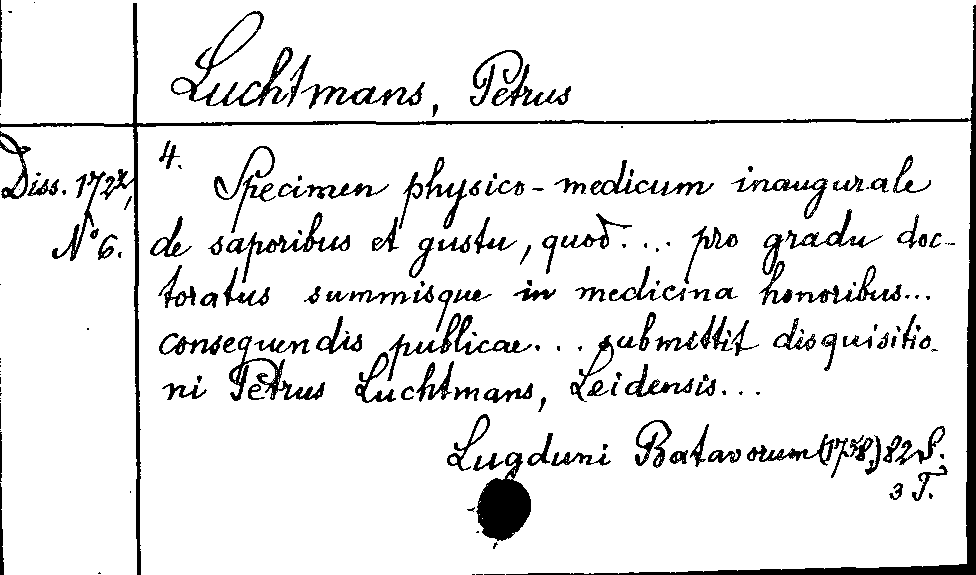 Luchtmans, Petrus
Diss. 1722,
No 6.
4.
Specimen physico-medicum inaugurale
de saporibus et gustu, quod.... pro gradu doc-
toratus summisque in medicina honoribus...
consequendis publicae... submittit disquisitio-
ni Petrus Luchtmans, Leidensis...
Lugduni Batavorum (1758.) 82 S.
3 T.